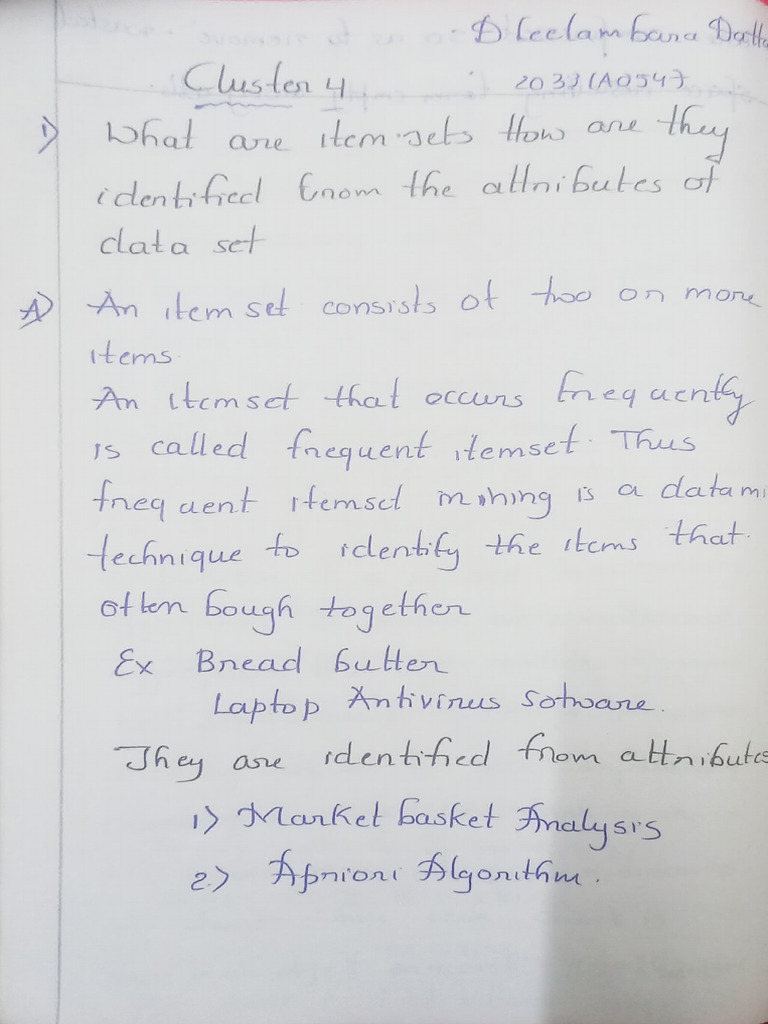 D Leelambara Datta
Cluster 4 2033(A054)
1) What are item sets How are they
identified from the attributes of
data set
A) An item set consists of two or more
items.
An itemset that occurs frequently
is called frequent itemset. Thus
frequent itemset mining is a datami
technique to identify the items that
often bough together
Ex Bread butter
Laptop Antivirus sotware.
They are identified from attributes
1) Market basket Analysis
2) Apriori Algorithm.